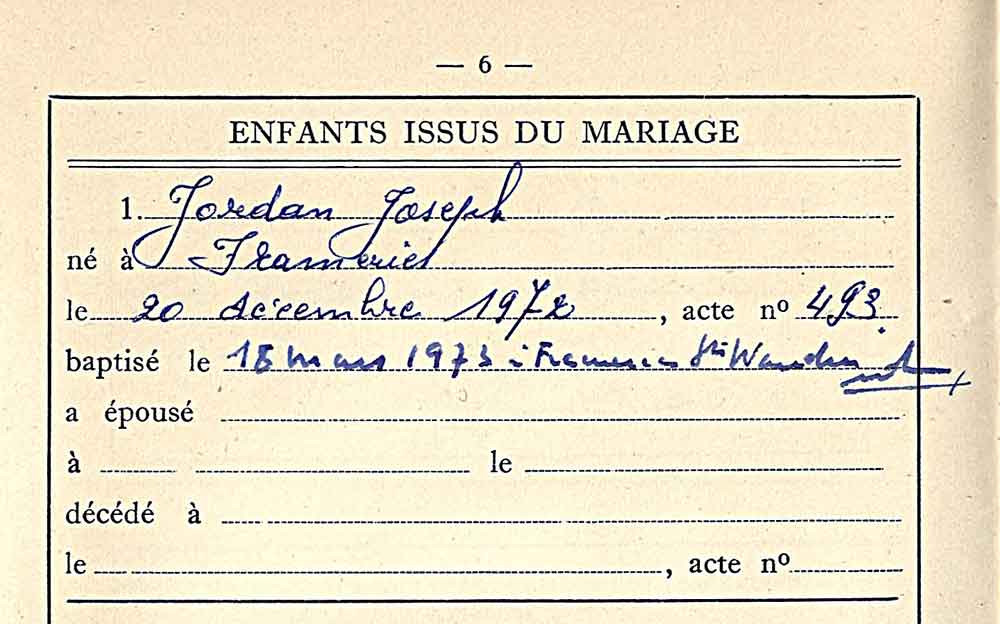 — 6 —
ENFANTS ISSUS DU MARIAGE
1. Jordan Joseph
né à Frameries
le 20 décembre 1972, acte nº 493.
baptisé le 18 mars 1973 à Frameries Ste Waudru
a épousé
à le
décédé à
le , acte nº